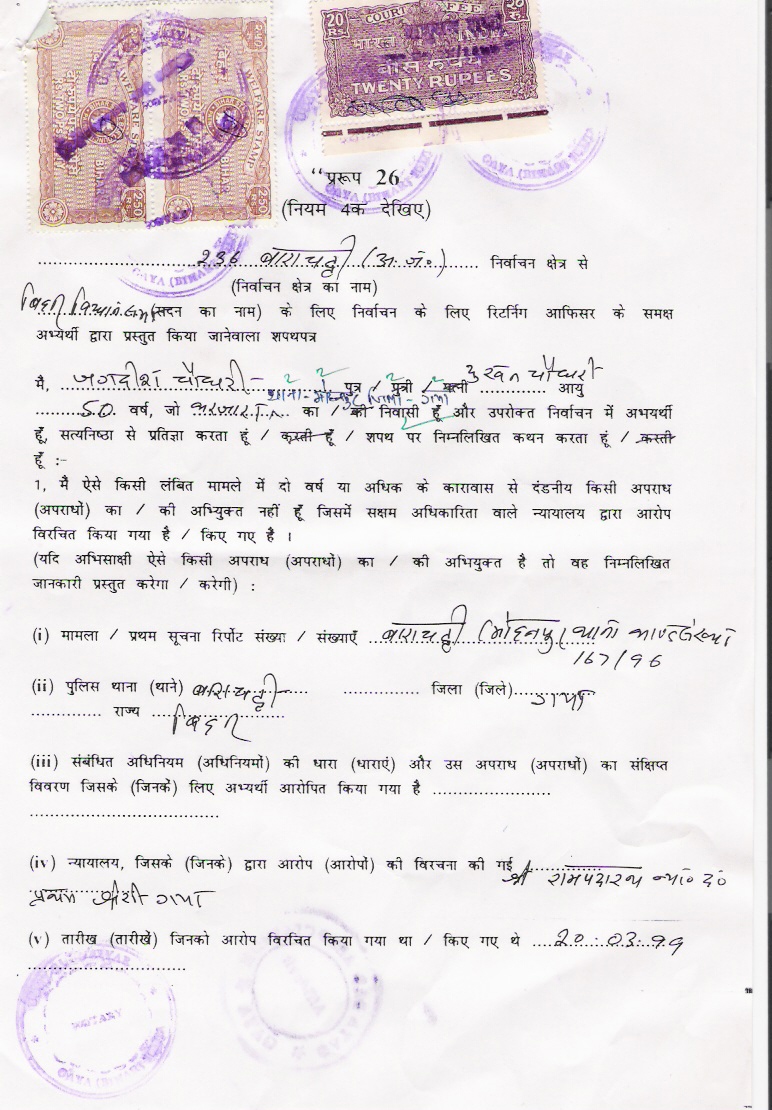 20 Rs. COURT FEE 20 रु.
भारत INDIA
बीस रुपये
TWENTY RUPEES
WELFARE STAMP
BIHAR
250
250
"प्ररूप 26
(नियम 4क देखिए)
236 बाराचट्टी (अ.जा.) निर्वाचन क्षेत्र से
(निर्वाचन क्षेत्र का नाम)
(सदन का नाम) के लिए निर्वाचन के लिए रिटर्निग आफिसर के समक्ष
अभ्यर्थी द्वारा प्रस्तुत किया जानेवाला शपथपत्र
मैं, जगदीश चौधरी पुत्र / पुत्री / पत्नी चौधरी आयु
50 वर्ष, जो का / की निवासी हूँ और उपरोक्त निर्वाचन में अभयर्थी
हूँ, सत्यनिष्ठा से प्रतिज्ञा करता हूं / करती हूँ / शपथ पर निम्नलिखित कथन करता हूं / करती
हूँ :-
1, मैं ऐसे किसी लंबित मामले में दो वर्ष या अधिक के कारावास से दंडनीय किसी अपराध
(अपराधों) का / की अभियुक्त नहीं हूँ जिसमें सक्षम अधिकारिता वाले न्यायालय द्वारा आरोप
विरचित किया गया है / किए गए है ।
(यदि अभिसाक्षी ऐसे किसी अपराध (अपराधों) का / की अभियुक्त है तो वह निम्नलिखित
जानकारी प्रस्तुत करेगा / करेगी) :
(i) मामला / प्रथम सूचना रिर्पोट संख्या / संख्याएँ बाराचट्टी (मोहनपुर) थाना काण्ड संख्या
167/96
(ii) पुलिस थाना (थाने) बाराचट्टी जिला (जिले) गया
राज्य बिहार
(iii) संबंधित अधिनियम (अधिनियमों) की धारा (धाराएं) और उस अपराध (अपराधों) का संक्षिप्त
विवरण जिसके (जिनके) लिए अभ्यर्थी आरोपित किया गया है
(iv) न्यायालय, जिसके (जिनके) द्वारा आरोप (आरोपों) की विरचना की गई श्री रामपदारथ न्या० द०
प्रथम श्रेणी गया
(v) तारीख (तारीखें) जिनको आरोप विरचित किया गया था / किए गए थे 20.03.99
NOTARY
GAYA (BIHAR)